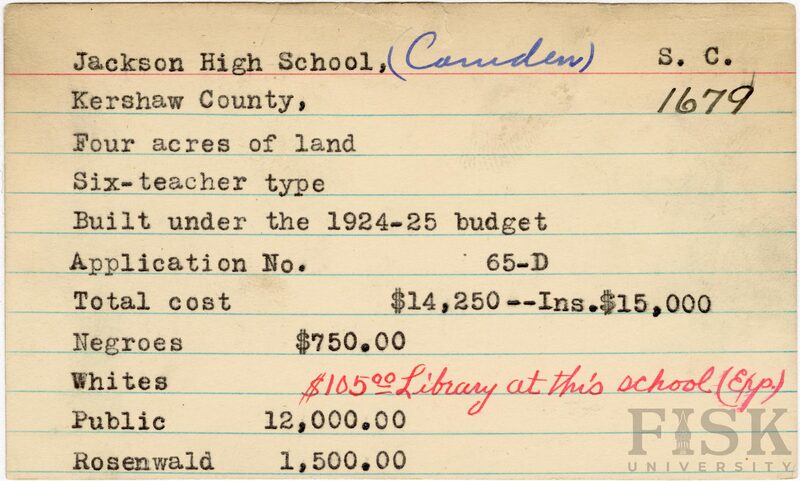 Jackson High School, (Camden) S. C.
Kershaw County, 1679
Four acres of land
Six-teacher type
Built under the 1924-25 budget
Application No. 65-D
Total cost $14,250--Ins.$15,000
Negroes $750.00
Whites $105.00 Library at this school (Exp.)
Public 12,000.00
Rosenwald 1,500.00
FISK
UNIVERSITY